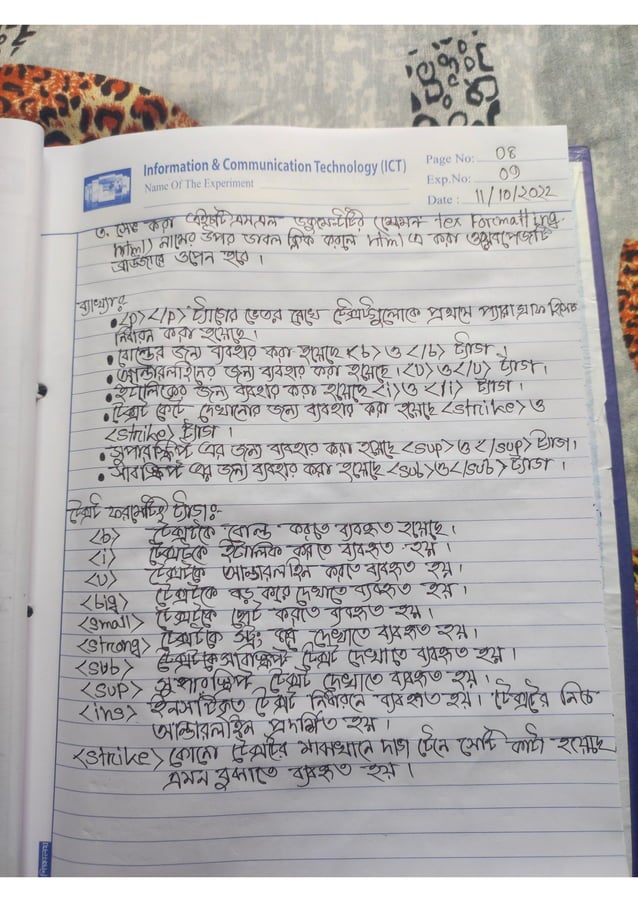 Information & Communication Technology (ICT)
Name Of The Experiment
Page No: 08
Exp.No: 09
Date : 11/10/2022
৩. সেভ করা এইচটিএমএল ডকুমেন্টটির (যেমন tex Formatting.
html) নামের উপর ডাবল ক্লিক করলে html এ করা ওয়েবপেজটি
ব্রাউজারে ওপেন হবে ।
ব্যাখ্যাঃ
• <p></p> ট্যাগের ভেতর রেখে টেক্সটগুলোকে প্রথমে প্যারাগ্রাফ হিসেবে
নির্ধারন করা হয়েছে।
• বোল্ডের জন্য ব্যবহার করা হয়েছে <b> ও </b> ট্যাগ ।
• আন্ডারলাইনের জন্য ব্যবহার করা হয়েছে। <U> ও </U> ট্যাগ ।
• ইটালিকের জন্য ব্যবহার করা হয়েছে <i> ও </i> ট্যাগ ।
• টেক্সট কেটে দেখানোর জন্য ব্যবহার করা হয়েছে <strike> ও
<strike> ট্যাগ ।
• সুপারস্ক্রিপ্ট এর জন্য ব্যবহার করা হয়েছে <sup> ও </sup> ট্যাগ।
• সাবস্ক্রিপ্ট এর জন্য ব্যবহার করা হয়েছে <sub> ও </sub> ট্যাগ ।
টেক্সট ফরমেটিং ট্যাগঃ-
<b> টেক্সটকে বোল্ড করতে ব্যবহৃত হয়েছে ।
<i> টেক্সটকে ইটালিক করতে ব্যবহৃত হয় ।
<U> টেক্সটকে আন্ডারলাইন করতে ব্যবহৃত হয় ।
<big> টেক্সটকে বড় করে দেখাতে ব্যবহৃত হয় ।
<small> টেক্সটকে ছোট করতে ব্যবহৃত হয় ।
<strong> টেক্সটকে দেখাতে ব্যবহৃত হয় ।
<sub> টেক্সটকে সাবস্ক্রিপ্ট টেক্সট দেখাতে ব্যবহৃত হয় ।
<sup> সুপারস্ক্রিপ্ট টেক্সট দেখাতে ব্যবহৃত হয় ।
<ins> ইনসার্টকৃত টেক্সট নির্ধারনে ব্যবহৃত হয়। টেক্সটের নিচে
আন্ডারলাইন প্রদর্শিত হয় ।
<strike> কোনো টেক্সটের মাঝখানে দাগ টেনে সেটি কাটা হয়েছে
এমন বুঝাতে ব্যবহৃত হয় ।